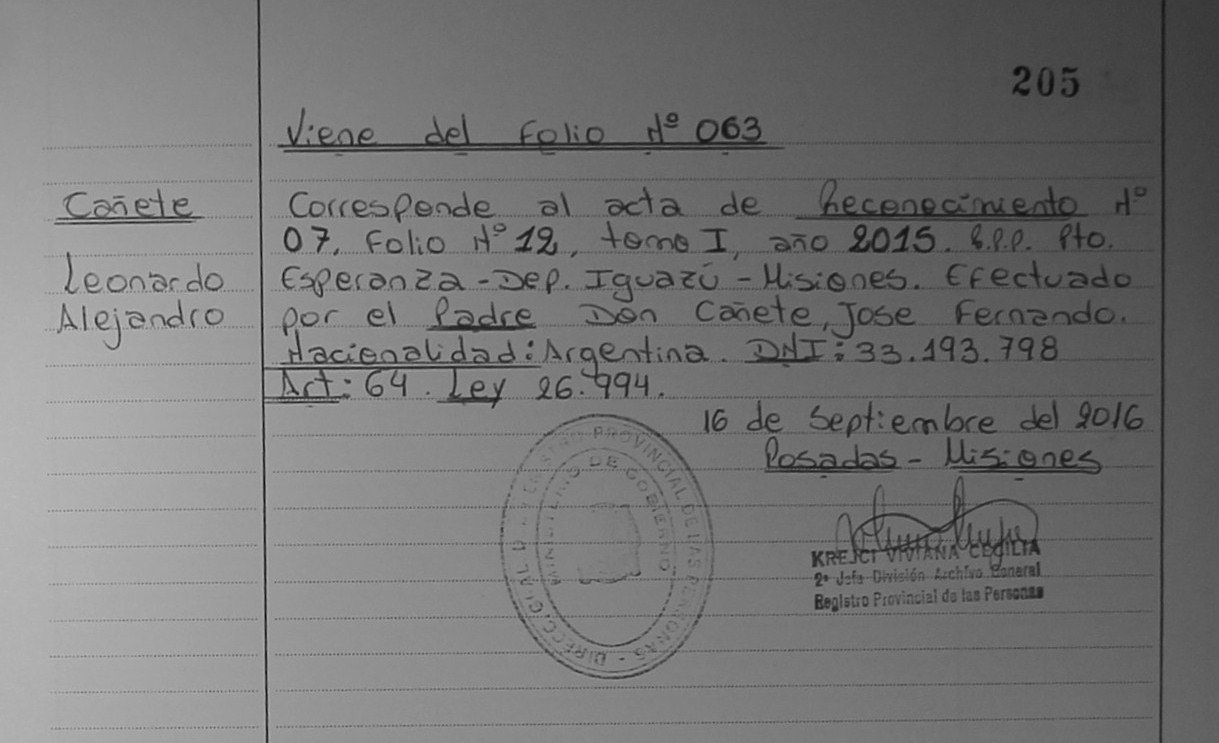 205
Viene del Folio Nº 063
Cañete
Leonardo
Alejandro
Corresponde al acta de Reconocimiento Nº
07. Folio Nº 12, tomo I, año 2015. R.P.P. Pto.
Esperanza - Dep. Iguazú - Misiones. Efectuado
por el Padre Don Cañete, Jose Fernando.
Nacionalidad: Argentina. DNI: 33.193.798
Art: 64. Ley 26.994.
16 de Septiembre del 2016
Posadas - Misiones
PROVINCIAL DE LAS PERSONAS - DIRECC
MINISTERIO DE GOBIERNO
KREJCI VIVIANA CECILIA
2º Jefa División Archivo General
Registro Provincial de las Personas